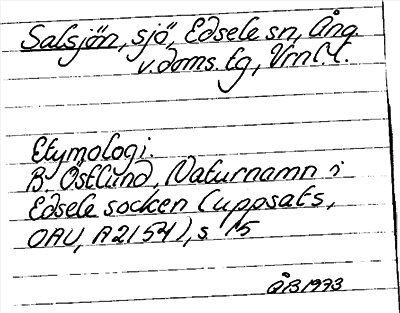 Salsjön, sjö, Edsele sn, Ång.
v. doms. tg, Vrnl. l.
Etymologi.
B. Östlund, Naturnamn i
Edsele socken (uppsats,
OAU, A 2154), s. 15
ÅB 1973